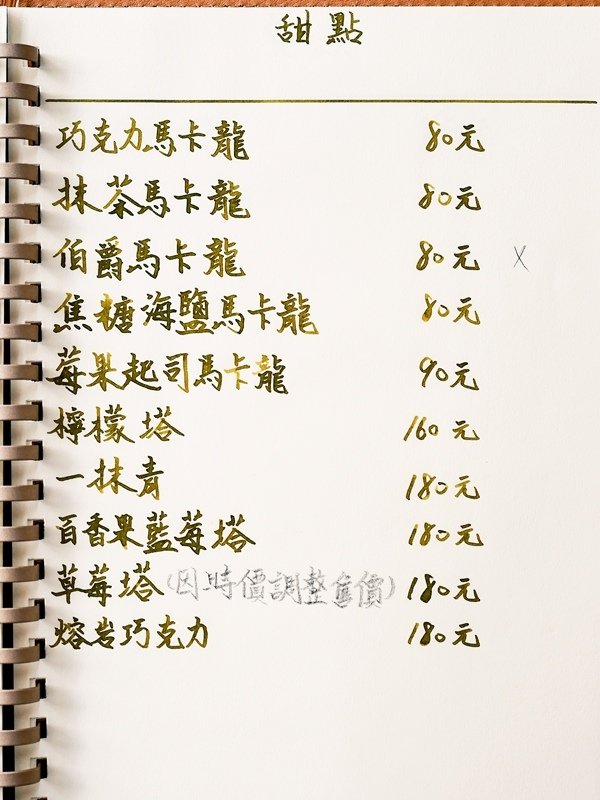 甜點
巧克力馬卡龍 80元
抹茶馬卡龍 80元
伯爵馬卡龍 80元 X
焦糖海鹽馬卡龍 80元
莓果起司馬卡龍 90元
檸檬塔 160元
一抹青 180元
百香果藍莓塔 180元
草莓塔(因時價調整售價) 180元
熔岩巧克力 180元